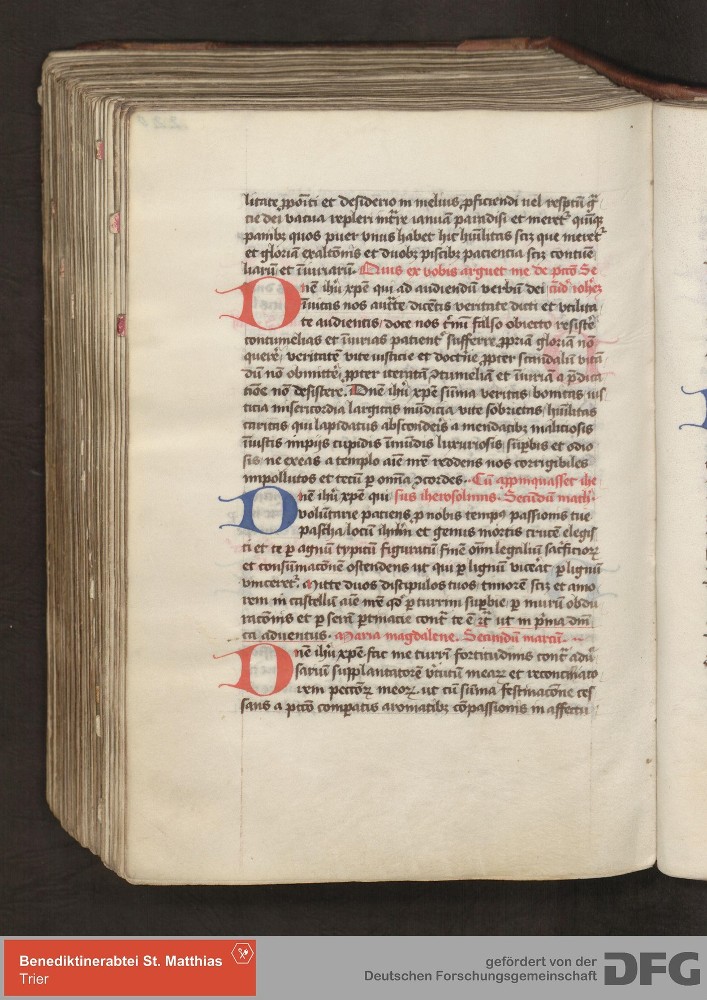 litate ꝓpoīti et desiderio in melius ꝓficiendi uel respctū grā
cie dei vacua repleri mētꝭre ianuā paradisi et meretʳ quīqꝫ
panibꝫ quos puer vnus habet hic hūilitas scꝫ que meretʳ
et gloriam exaltōnis et duobꝫ piscibꝫ paciencia scꝫ contūe
liarū et īniuriarū· Quis ex vobis arguet me de pctō Se
Dnē ihū xpē qui ad audiendū verbū dei cūdꝫ iohēꝫ
inuitas nos aucte dicentis veritate dicti et vtilita
te audientis/ doce nos falso obiecto resistē
contumelias et īniurias patient᾽ sufferre ꝓpriā gloriam nō
querē· veritatē vite iusticie et doctrīe ꝓpter scandalū vitā
dū nō obmittē· ꝓpter iteratā ꝯtumeliā et īniuriā a p̄dica
tiōe nō desistere· Dnē ihū xpē sūma veritas bonitas ius
ticia misericordia largitas mūdicia vite sobrietas hūilitas
caritas qui lapidatus absconderis a mendacibꝫ maliciosis
iniustis impijs cupidis īmūdis luxuriosis suꝑbis et odio
sis ne exeas a templo aīe mee reddens nos corrigibiles
impollutos et tecū ꝑ omīa ꝯcordes· Cū apꝓpinquasset ihe
Dnē ihū xpē qui sus iherosolimis· Secūdum math·
voluntarie paciens ꝓ nobis tempꝰ passionis tue
pascha locū ihrlm et genus mortis crucē elegis
ti et te ꝑ agnū typicū figuratū finē oīm legaliū sacrificioꝝ
et consūmacōnē ostendens ut qui ꝑ lignū vicēat ꝑ lignū
vinceretʳ· Mitte duos discipulos tuos timorē scꝫ et amo
rem in castellū aīe meē qd ꝑ turrim suꝑbie ꝑ murū obdu
racōnis et ꝑ serā ꝑtinacie contᵃ te ē ut in prima dīnī
ca aduentus· Maria magdalene· Secundū marcū·
Dnē ihū xpē fac me turrī fortitudinis contᵃ adū
sariū supplantatorē v̓tutū mearꝝ et reconciliato
rem peccōꝝ meoꝝ ut cū sūma festinacōne ces
sans a pctō comparatis aromatibꝫ cōpassionis in affectu
Benediktinerabtei St. Matthias
Trier
gefördert von der
Deutschen Forschungsgemeinschaft
DFG